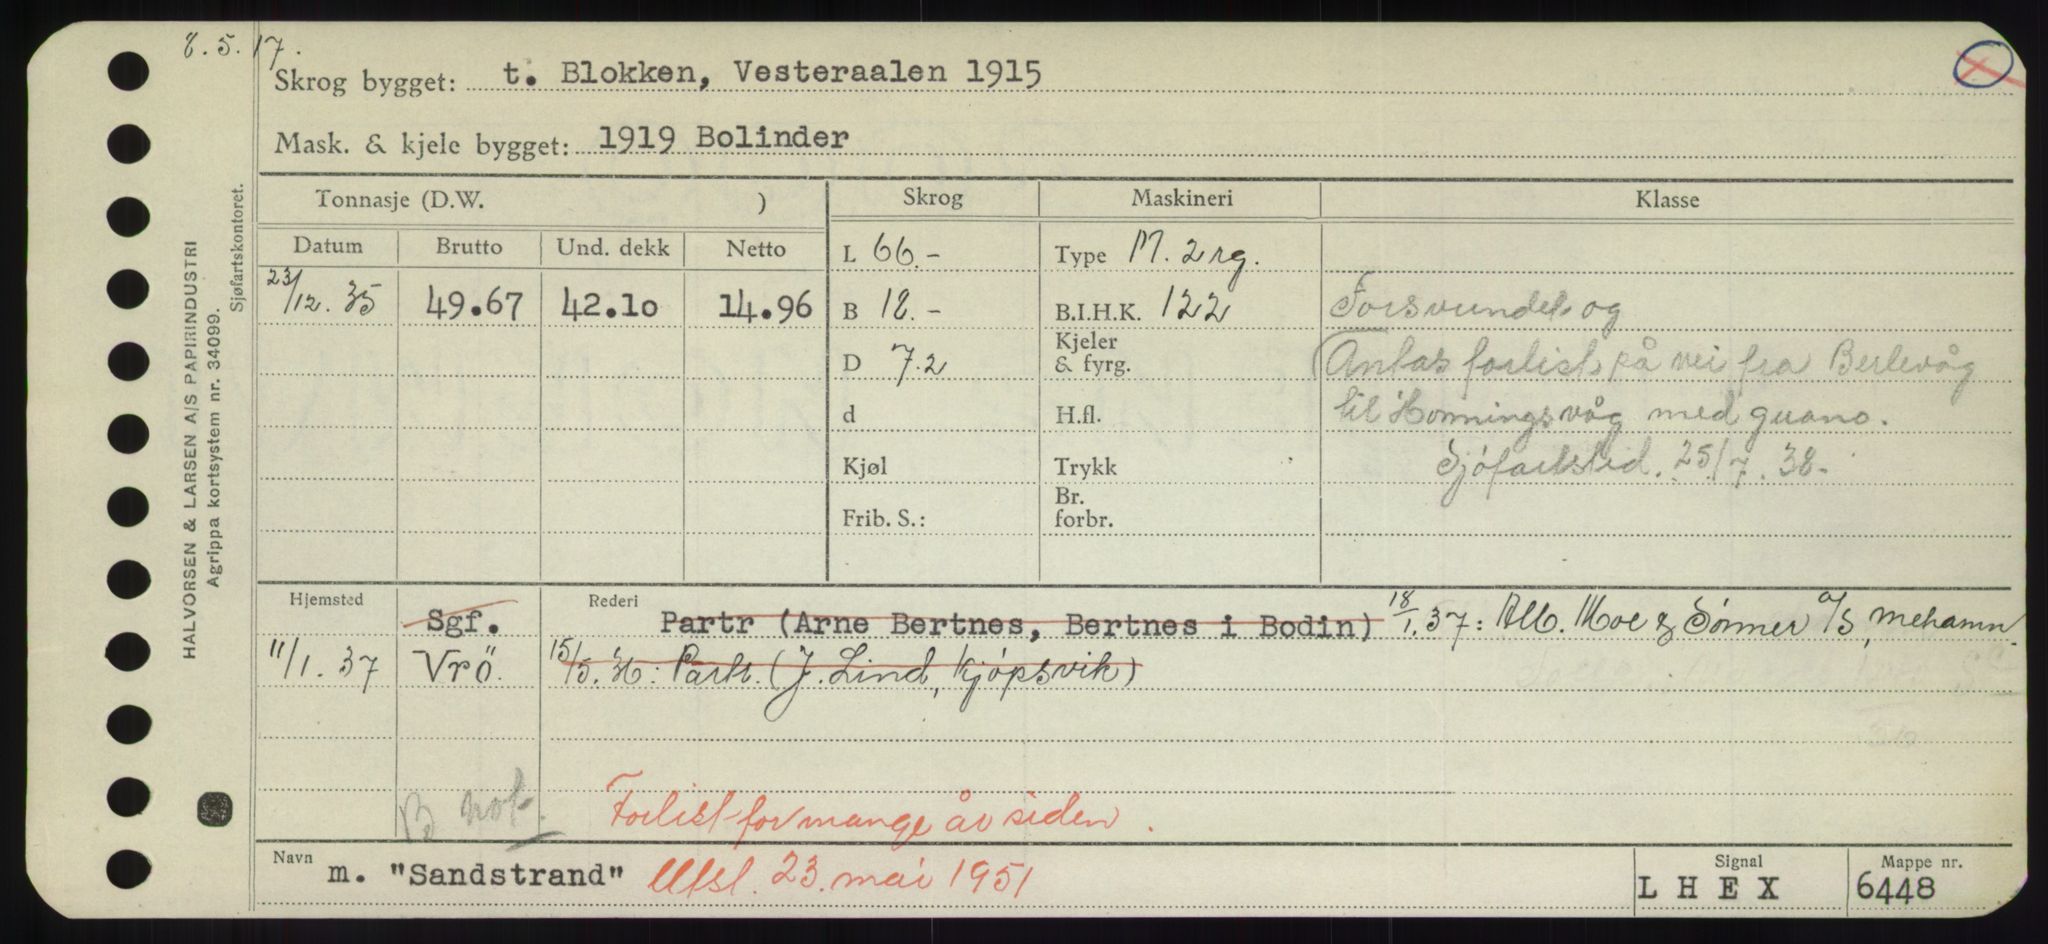 8.5.17.
Skrog bygget: t. Blokken, Vesteraalen 1915
Mask. & kjele bygget: 1919 Bolinder
HALVORSEN & LARSEN A/S PAPIRINDUSTRI
Agrippa kortsystem nr. 34099.
Sjøfartskontoret.
Tonnasje (D.W. ) Skrog Maskineri Klasse
Datum Brutto Und. dekk Netto
L 66.- Type M. 2 rg.
23/12. 35 49.67 42.10 14.96 B 18.- B.I.H.K. 122 Forsvundet og
D 7.2 Kjeler & fyrg. (Antas forlist på vei fra Berlevåg
d H.fl. til Honningsvåg med guano.
Kjøl Trykk Sjøfartstid. 25/7. 38.
Frib. S.: Br. forbr.
Hjemsted Rederi
Sgf. Partr (Arne Bertnes, Bertnes i Bodin) 18/1.37: Alb. Moe & Sønner A/S, Mehamn.
11/1. 37 Vrö. 15/5. 36: Partr. (J. Lind, Kjøpsvik)
B not. Forlist for mange år siden.
Navn m. "Sandstrand" Utsl. 23. mai 1951
Signal LHEX
Mappe nr. 6448